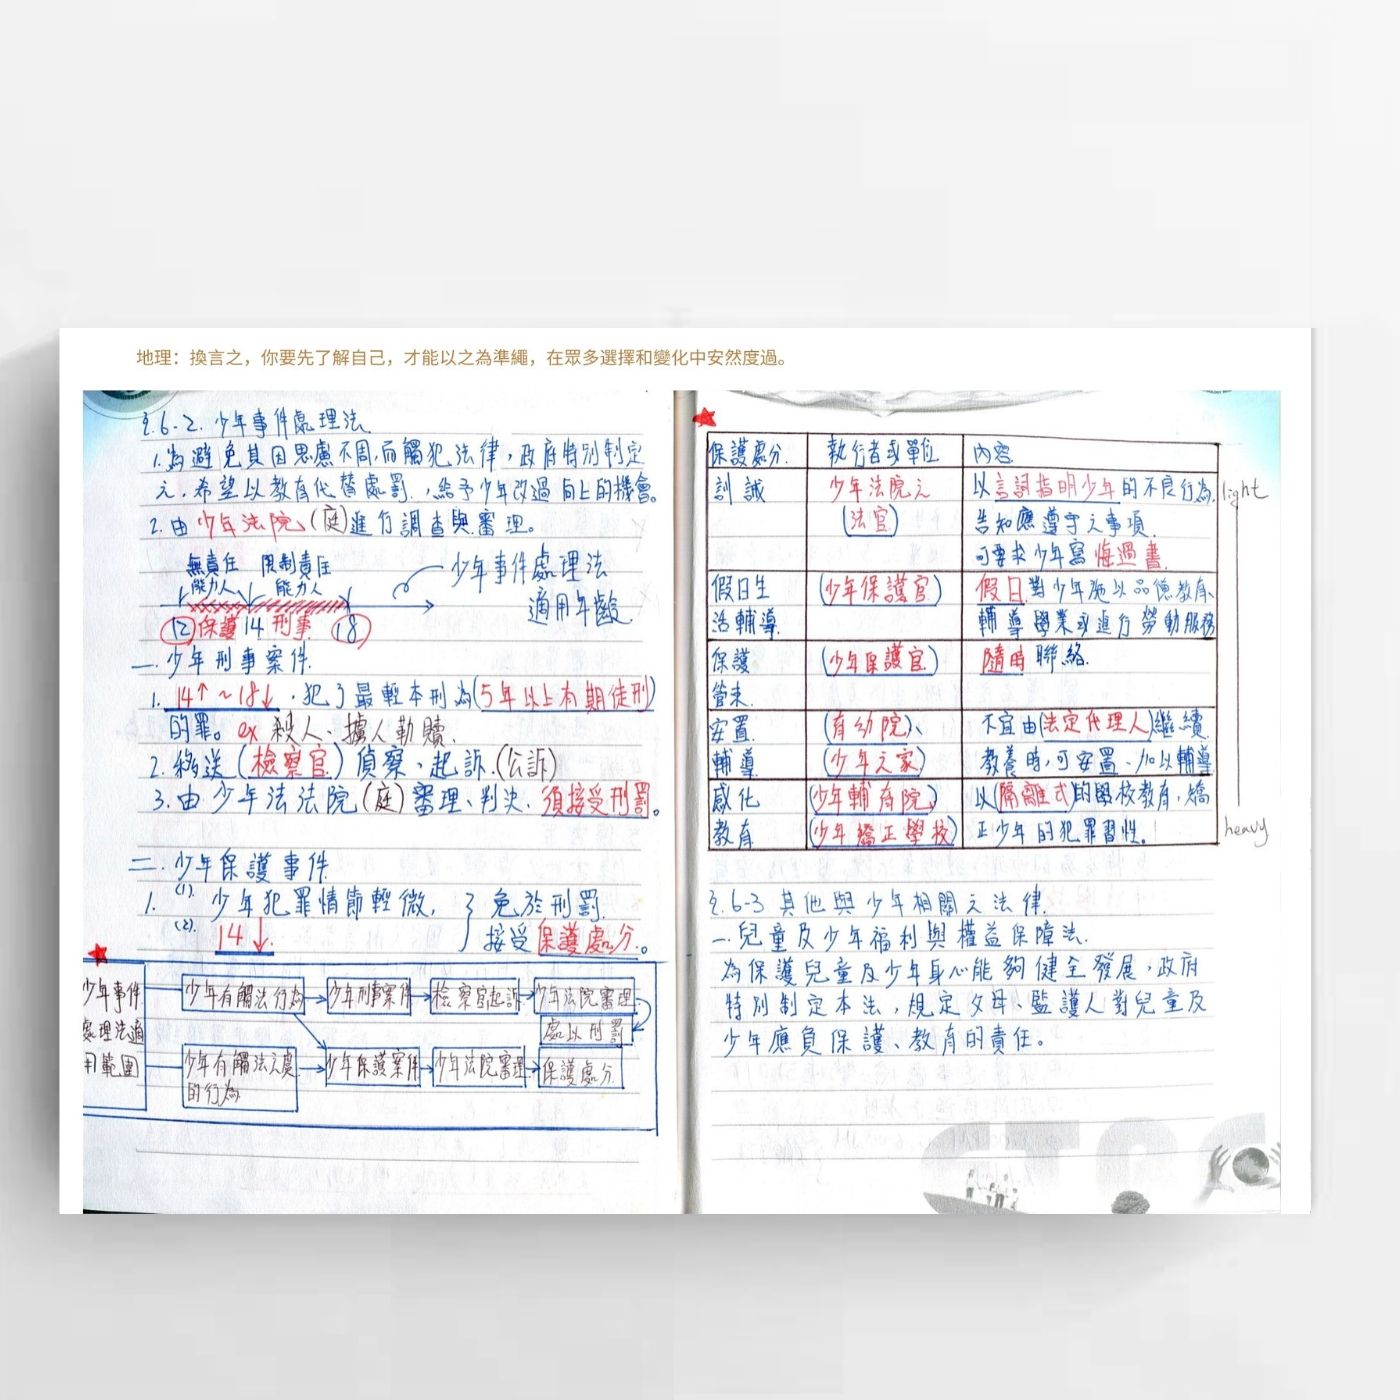 地理：換言之，你要先了解自己，才能以之為準繩，在眾多選擇和變化中安然度過。
§.6-2. 少年事件處理法
1.為避免其因思慮不周,而觸犯法律，政府特別制定
之.希望以教育代替處罰.，給予少年改過向上的機會。
2.由少年法院(庭)進行調查與審理。
無責任 限制責任
能力人 能力人
少年事件處理法
適用年齡
12 保護 14 刑事 18
一.少年刑事案件.
1. 14↑~18↓，犯了最輕本刑為(5年以上有期徒刑)
的罪。ex 殺人、擄人勒贖.
2.移送(檢察官)偵察、起訴.(公訴)
3.由少年法法院(庭)審理、判決.須接受刑罰。
二.少年保護事件.
1. (1). 少年犯罪情節輕微, } 免於刑罰.
(2). 14↓. 接受保護處分.。
少年事件
處理法適
用範圍
少年有觸法行為
少年刑事案件
檢察官起訴
少年法院審理
處以刑罰
少年有觸法之處
的行為
少年保護案件
少年法院審理
保護處分
保護處分. 執行者或單位 內容
訓誡 少年法院之 以言詞指明少年的不良行為, light
(法官) 告知應遵守之事項.
可要求少年寫悔過書
假日生 (少年保護官) 假日對少年施以品德教育、
活輔導. 輔導學業或進行勞動服務
保護 (少年保護官) 隨時聯絡.
管束.
安置 (育幼院)、 不宜由(法定代理人)繼續
輔導 (少年之家) 教養時,可安置、加以輔導
感化 (少年輔育院) 以(隔離式)的學校教育,矯
教育 (少年矯正學校) 正少年的犯罪習性。 heavy
§.6-3 其他與少年相關之法律.
一.兒童及少年福利與權益保障法.
為保護兒童及少年身心能夠健全發展，政府
特別制定本法，規定父母、監護人對兒童及
少年應負保護、教育的責任。